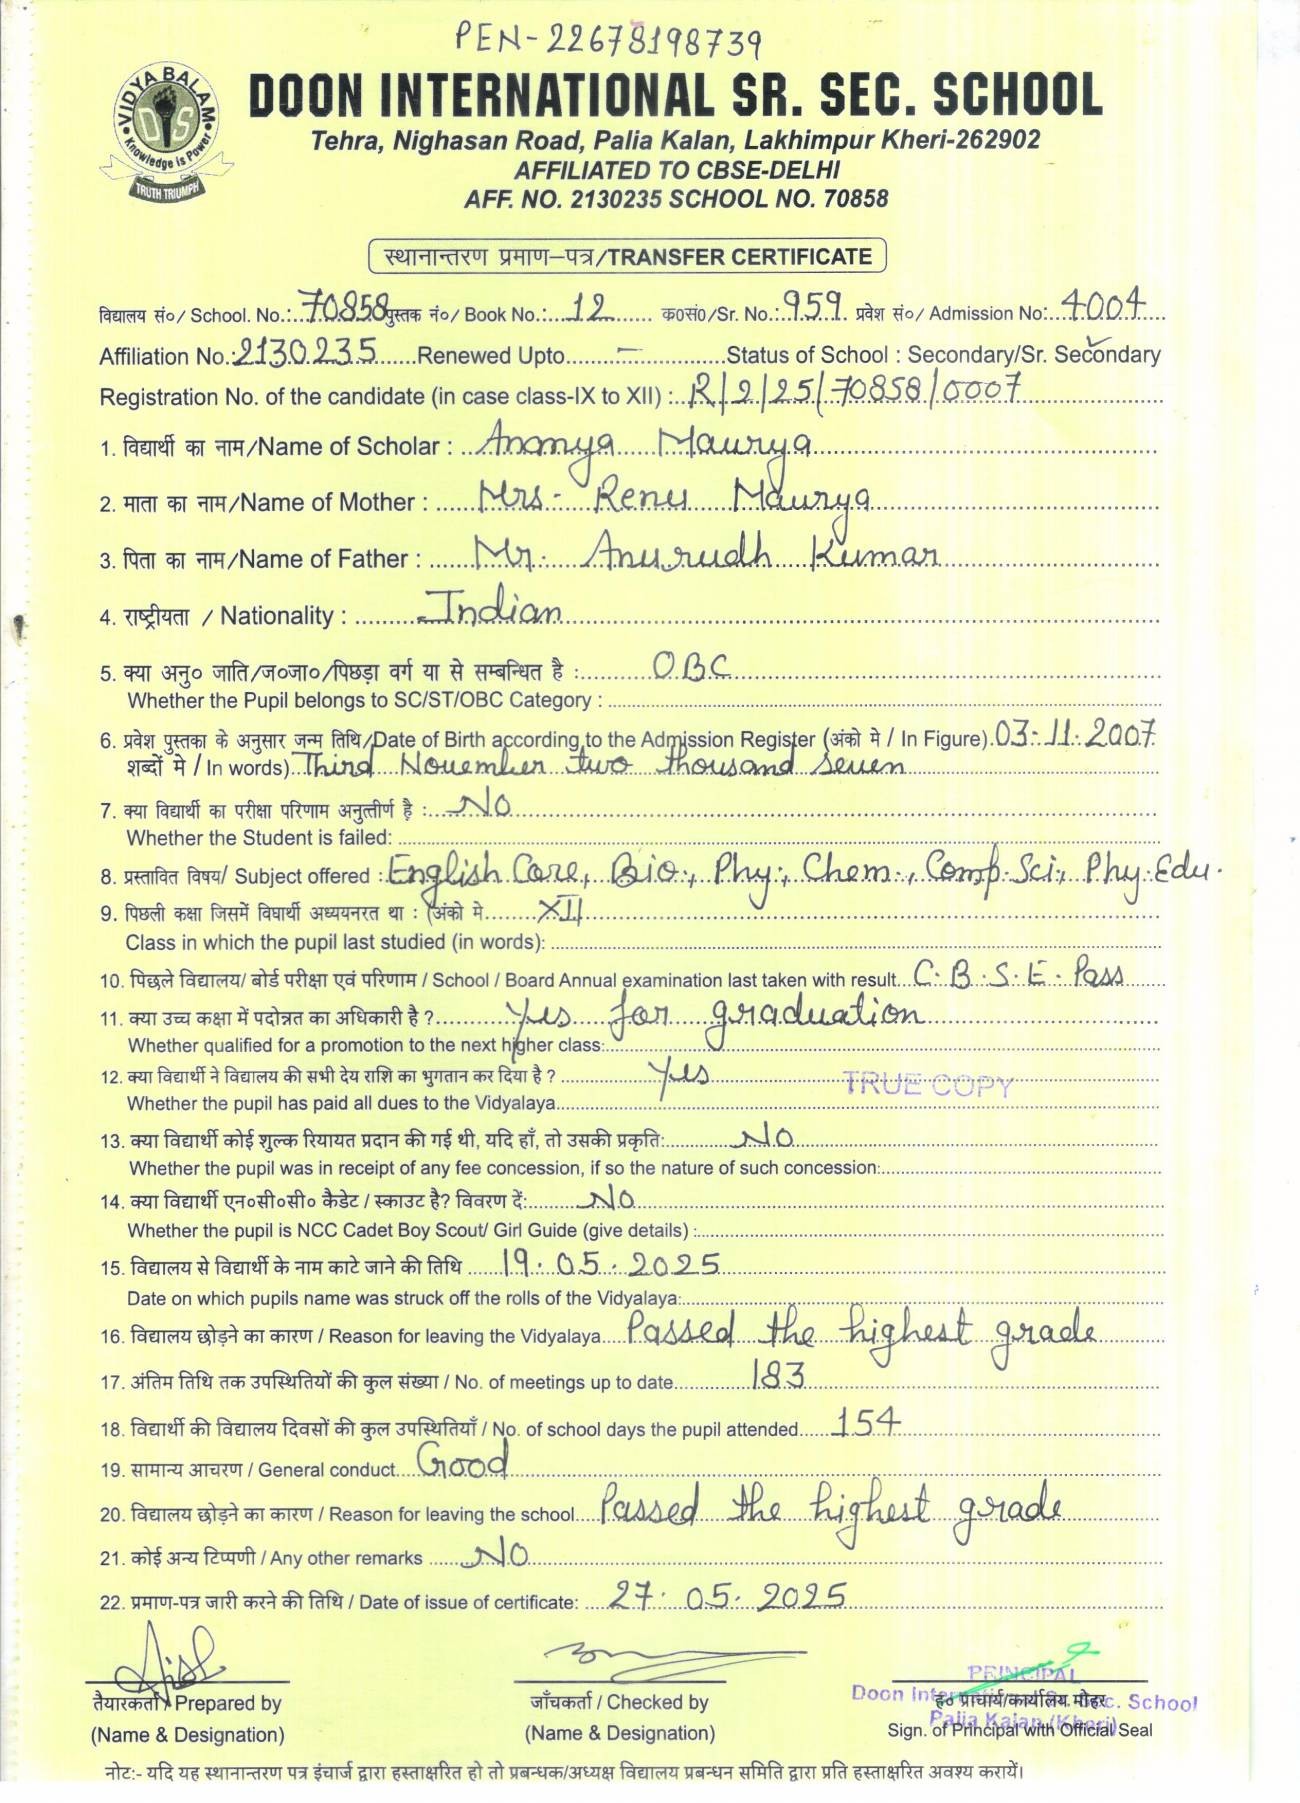 PEN-22678198739
VIDYA BALAM
DIS
Knowledge is Power
TRUTH TRIUMPH
DOON INTERNATIONAL SR. SEC. SCHOOL
Tehra, Nighasan Road, Palia Kalan, Lakhimpur Kheri-262902
AFFILIATED TO CBSE-DELHI
AFF. NO. 2130235 SCHOOL NO. 70858
स्थानान्तरण प्रमाण–पत्र/TRANSFER CERTIFICATE
विद्यालय सं०/ School. No.: 70858 पुस्तक नं०/ Book No.: 12 क०सं०/Sr. No.: 959 प्रवेश सं०/ Admission No: 4004
Affiliation No.: 2130235 Renewed Upto – Status of School : Secondary/Sr. Secondary
Registration No. of the candidate (in case class-IX to XII) : R/2/25/70858/0007
1. विद्यार्थी का नाम/Name of Scholar : Ananya Maurya
2. माता का नाम/Name of Mother : Mrs. Renu Maurya
3. पिता का नाम/Name of Father : Mr. Anurudh Kumar
4. राष्ट्रीयता / Nationality : Indian
5. क्या अनु० जाति/ज०जा०/पिछड़ा वर्ग या से सम्बन्धित है : OBC
Whether the Pupil belongs to SC/ST/OBC Category :
6. प्रवेश पुस्तका के अनुसार जन्म तिथि/Date of Birth according to the Admission Register (अंको मे / In Figure) 03.11.2007
शब्दों मे / In words) Third November two thousand seven
7. क्या विद्यार्थी का परीक्षा परिणाम अनुत्तीर्ण है : No
Whether the Student is failed:
8. प्रस्तावित विषय/ Subject offered : English Core, Bio., Phy., Chem., Comp. Sci., Phy. Edu.
9. पिछली कक्षा जिसमें विद्यार्थी अध्ययनरत था : (अंको मे XII
Class in which the pupil last studied (in words):
10. पिछले विद्यालय/ बोर्ड परीक्षा एवं परिणाम / School / Board Annual examination last taken with result C.B.S.E. Pass
11. क्या उच्च कक्षा में पदोन्नत का अधिकारी है ? Yes for graduation
Whether qualified for a promotion to the next higher class:
12. क्या विद्यार्थी ने विद्यालय की सभी देय राशि का भुगतान कर दिया है ? Yes
TRUE COPY
Whether the pupil has paid all dues to the Vidyalaya
13. क्या विद्यार्थी कोई शुल्क रियायत प्रदान की गई थी, यदि हाँ, तो उसकी प्रकृति: No
Whether the pupil was in receipt of any fee concession, if so the nature of such concession:
14. क्या विद्यार्थी एन०सी०सी० कैडेट / स्काउट है? विवरण दें: No
Whether the pupil is NCC Cadet Boy Scout/ Girl Guide (give details) :
15. विद्यालय से विद्यार्थी के नाम काटे जाने की तिथि 19.05.2025
Date on which pupils name was struck off the rolls of the Vidyalaya:
16. विद्यालय छोड़ने का कारण / Reason for leaving the Vidyalaya Passed the highest grade
17. अंतिम तिथि तक उपस्थितियों की कुल संख्या / No. of meetings up to date 183
18. विद्यार्थी की विद्यालय दिवसों की कुल उपस्थितियाँ / No. of school days the pupil attended 154
19. सामान्य आचरण / General conduct Good
20. विद्यालय छोड़ने का कारण / Reason for leaving the school Passed the highest grade
21. कोई अन्य टिप्पणी / Any other remarks No
22. प्रमाण-पत्र जारी करने की तिथि / Date of issue of certificate: 27.05.2025
PRINCIPAL
Doon International Sr. Sec. School
Palia Kalan (Kheri)
तैयारकर्ता / Prepared by जाँचकर्ता / Checked by ह० प्राचार्य/कार्यालय मोहर
(Name & Designation) (Name & Designation) Sign. of Principal with Official Seal
नोट:- यदि यह स्थानान्तरण पत्र इंचार्ज द्वारा हस्ताक्षरित हो तो प्रबन्धक/अध्यक्ष विद्यालय प्रबन्धन समिति द्वारा प्रति हस्ताक्षरित अवश्य करायें।